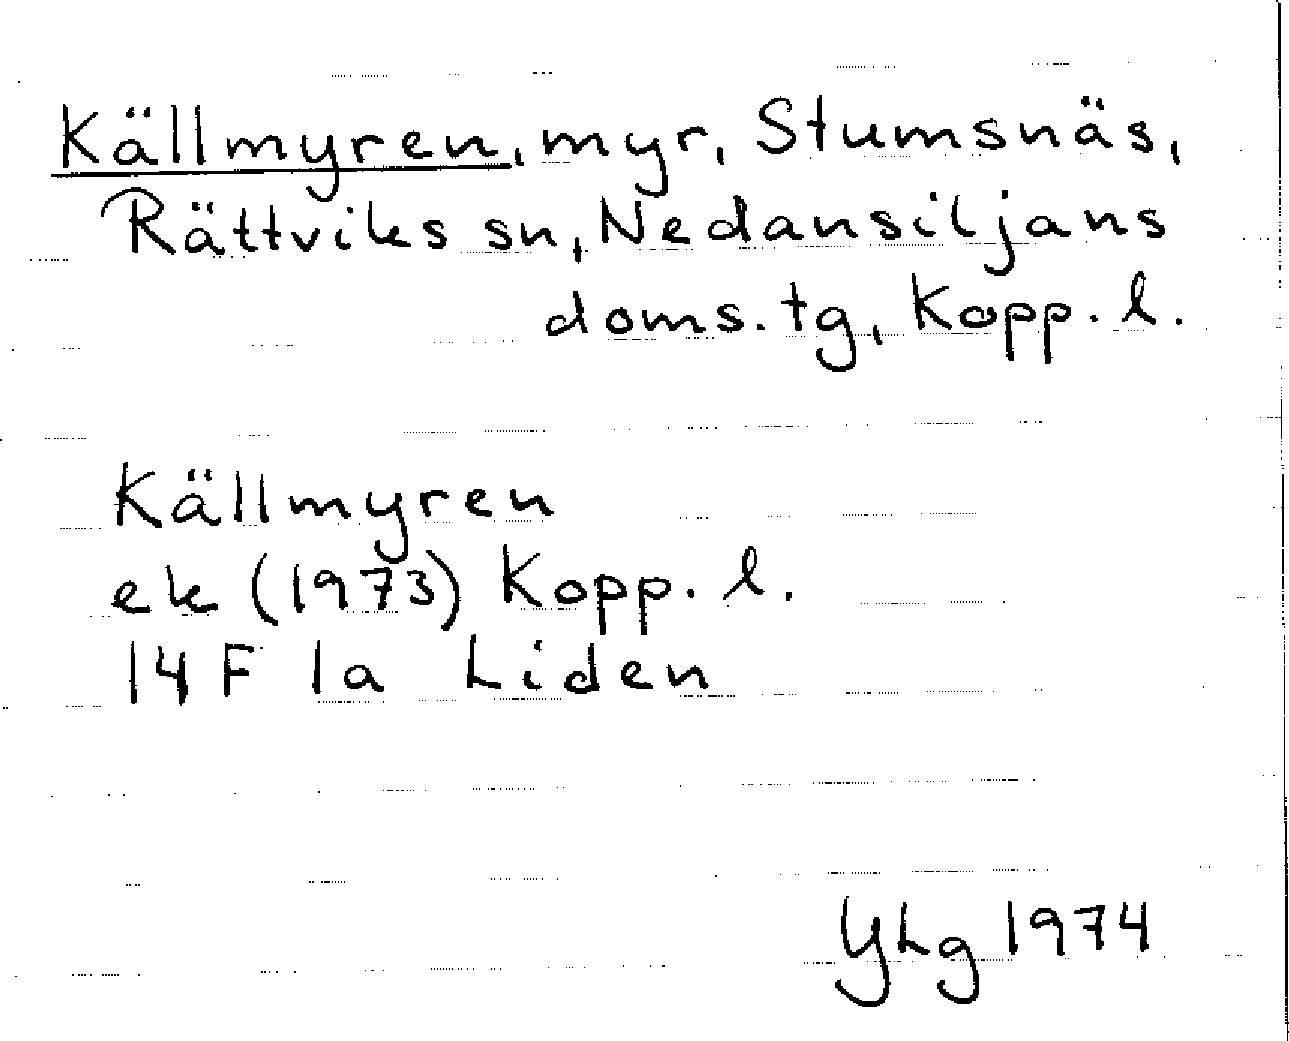 Källmyren, myr, Stumsnäs,
Rättviks sn, Nedansiljans
doms. tg, Kopp. l.
Källmyren
ek (1973) Kopp. l.
14 F 1a Liden
YLg 1974